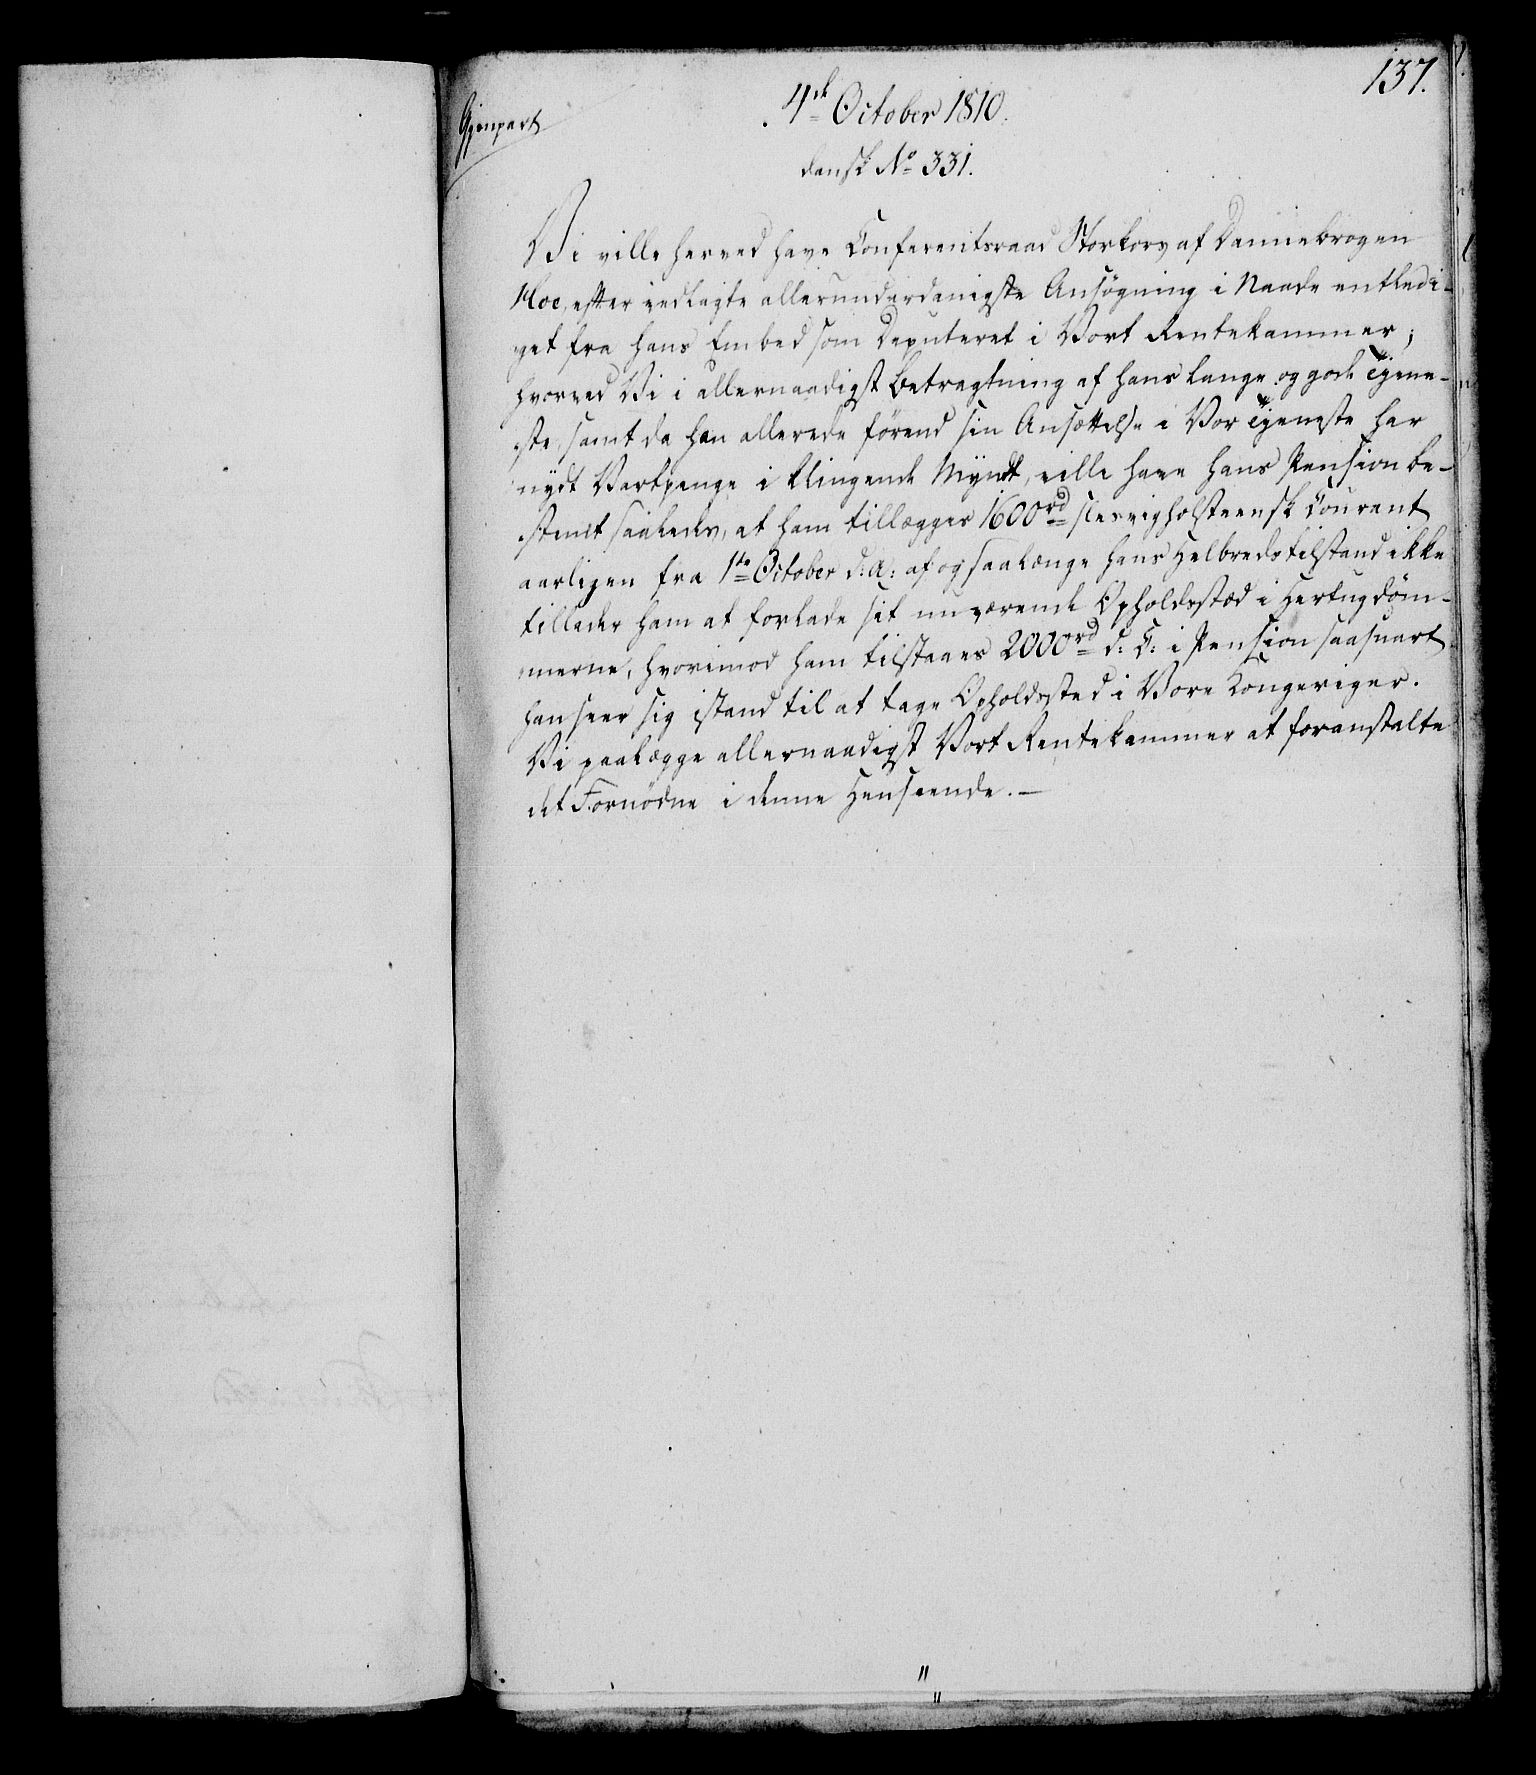 137.
Gjenpart
4de October 1810.
dansk No 331.
Vi ville herved have Conferentsraad Storkors af Dannebrogen
Moe, efter indlagte allerunderdanigste Ansøgning i Naade entledi-
get fra hans Embed som Deputeret i Vort Rentekammer;
hvorved Vi i allernaadigst Betragtning af hans lange og gode Tjene-
ste, samt da han allerede førend sin Ansættelse i Vor Tjeneste har
nydt Vartpenge i klingende Myndt, ville have hans Pension be-
stemt saaledes, at ham tillægges 1600rd slesvigholsteensk Courant
aarligen fra 1te October d: A: af og saalænge hans Helbredstilstand ikke
tillader ham at forlade sit nuværende Opholdsstæd i Hertugdøm-
merne, hvorimod ham tilstaaes 2000rd d: C: i Pension saasnart
han seer sig istand til at tage Opholdssted i Vore Kongeriger.
Vi paalægge allernaadigst Vort Rentekammer at foranstalte
det Fornødne i denne Henseende.—